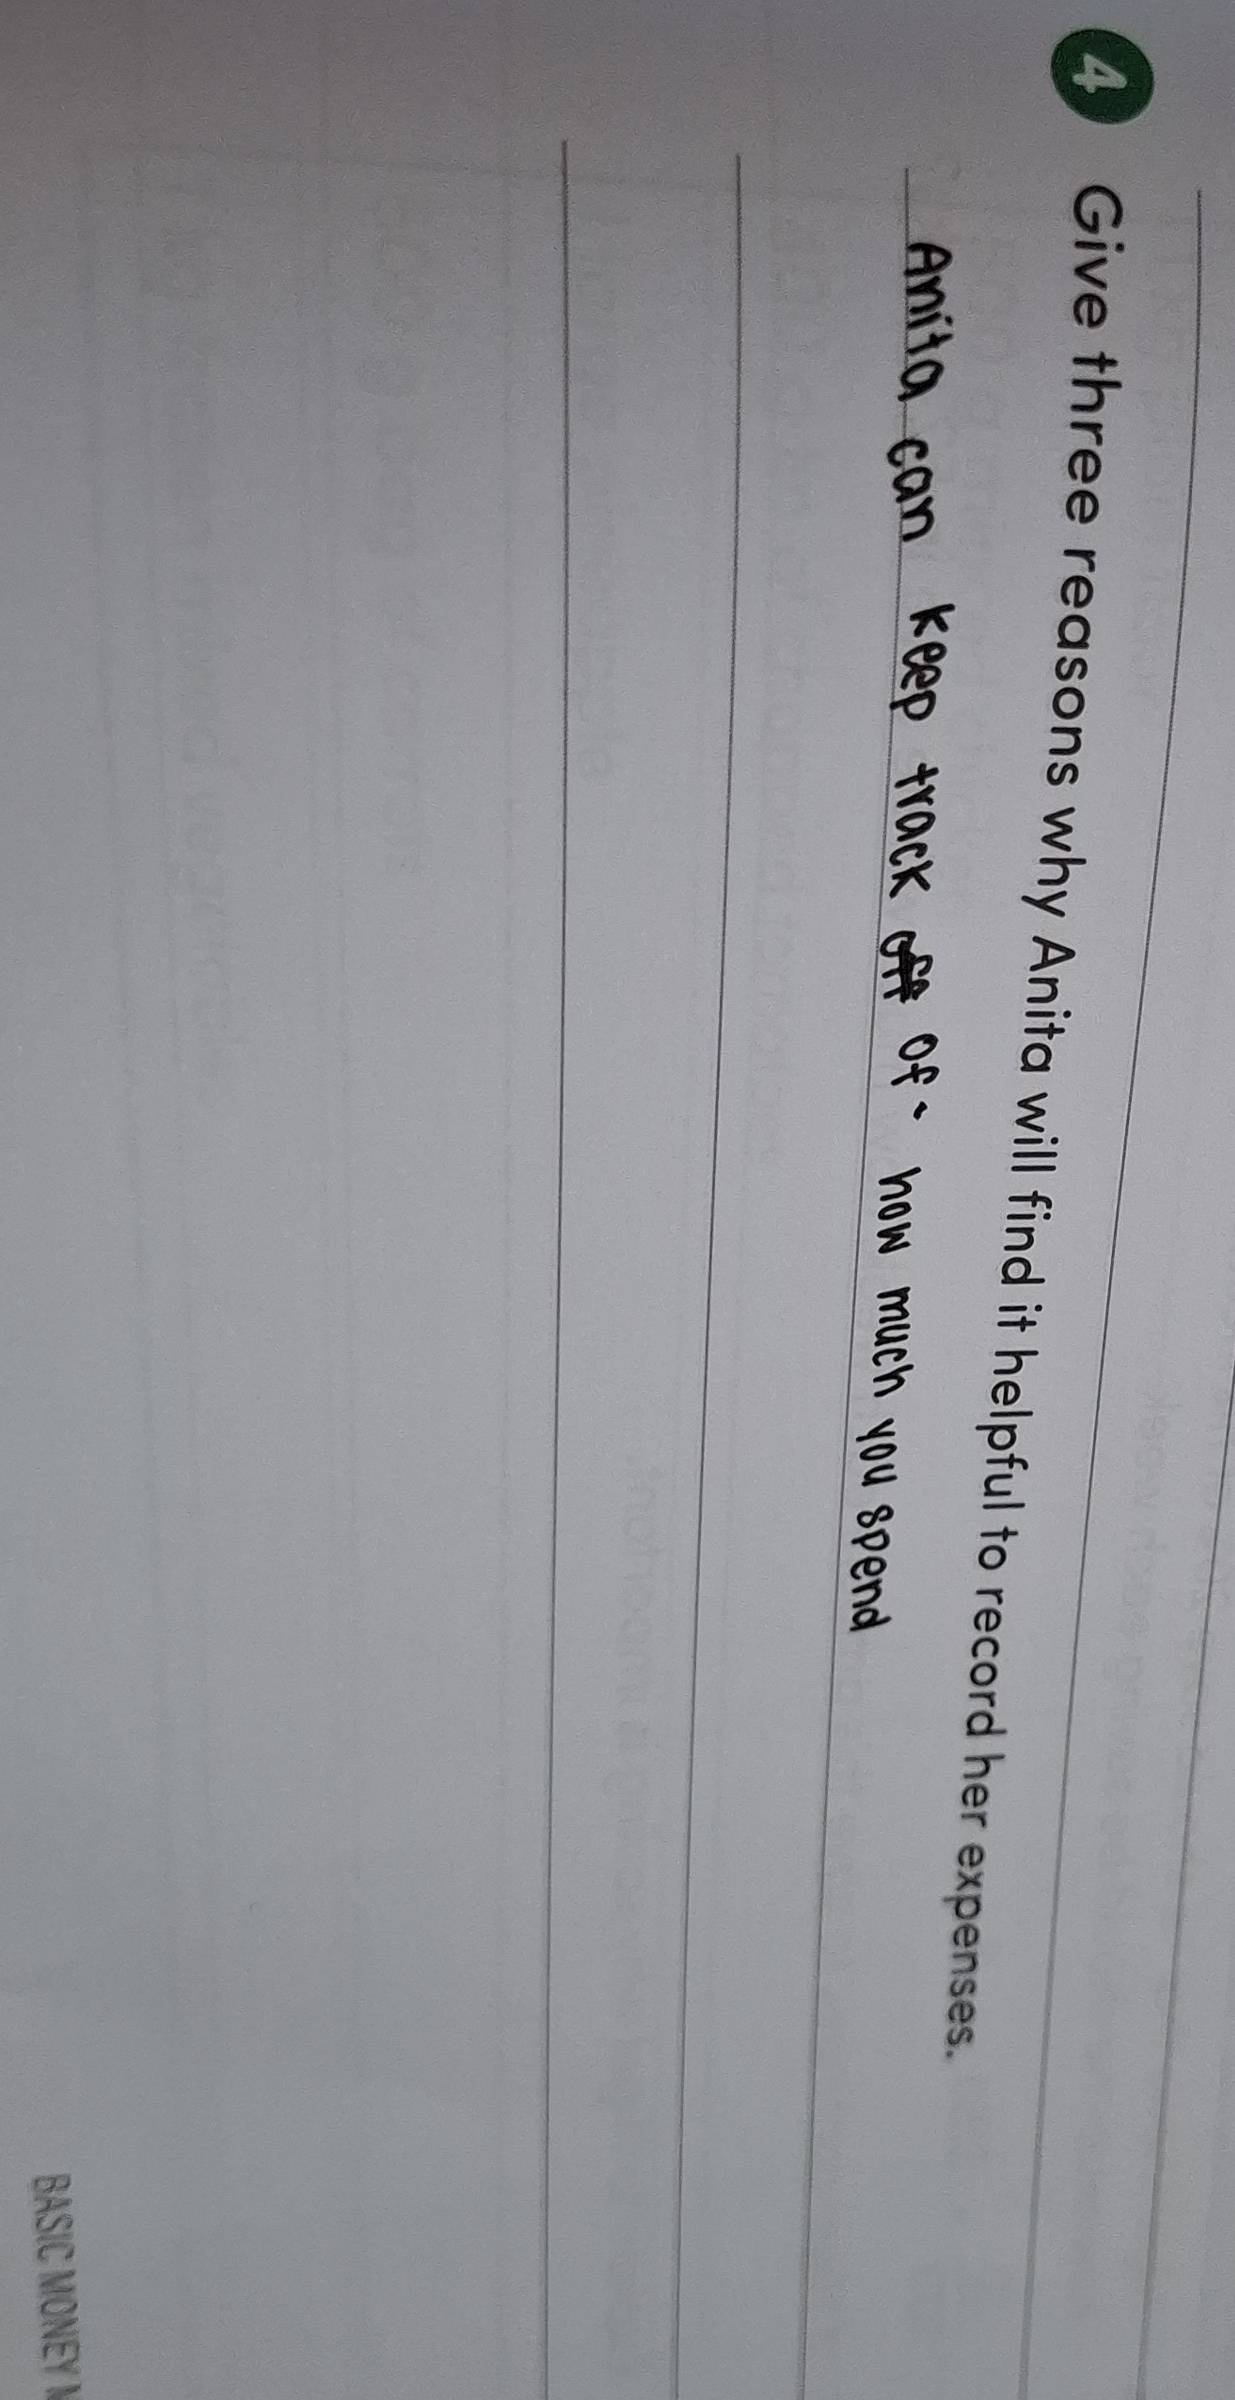 4 Give three reasons why Anita will find it helpful to record her expenses.
Anita can keep track off of. how much you spend
BASIC MONEY